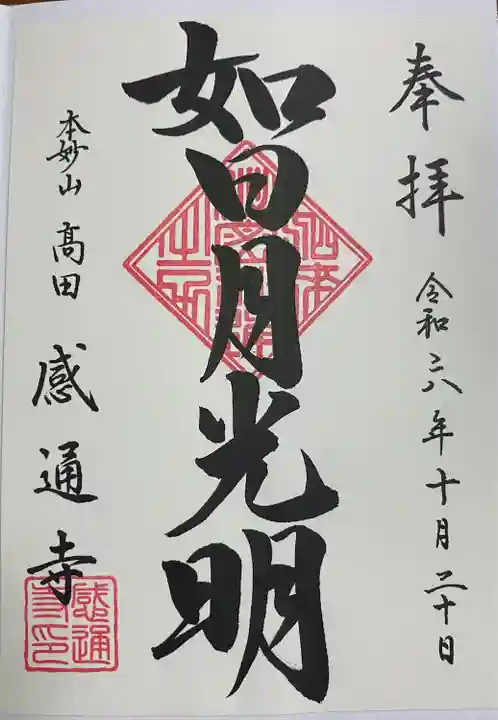 奉拝
令和六年十月二十日
如日月光明
本妙山 高田 感通寺
感通寺印